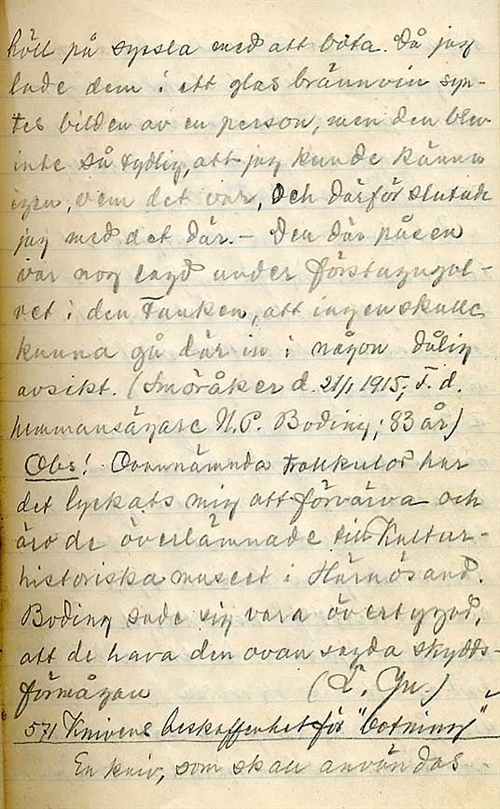 höll på syssla med att bota. Då jag
lade dem i ett glas brännvin syn-
tes bilden av en person, men den blev
inte så tydlig, att jag kunde känna
igen, vem det var, och därför slutade
jag med det där. – Den där påsen
var nog lagd under förstugugol-
vet i den tanken, att ingen skulle
kunna gå där in i någon dålig
avsikt. (Småråker d. 21/1 1915; f. d.
hemmansägare N. P. Boding; 83 år)
Obs! Ovannämnda trollkulor har
det lyckats mig att förvärva och
äro de överlämnade till Kultur-
historiska museet i Härnösand.
Boding sade sig vara övertygad,
att de hava den ovan sagda skydds-
förmågan
571 Knivens beskaffenhet för "botning"
En kniv, som skall användas